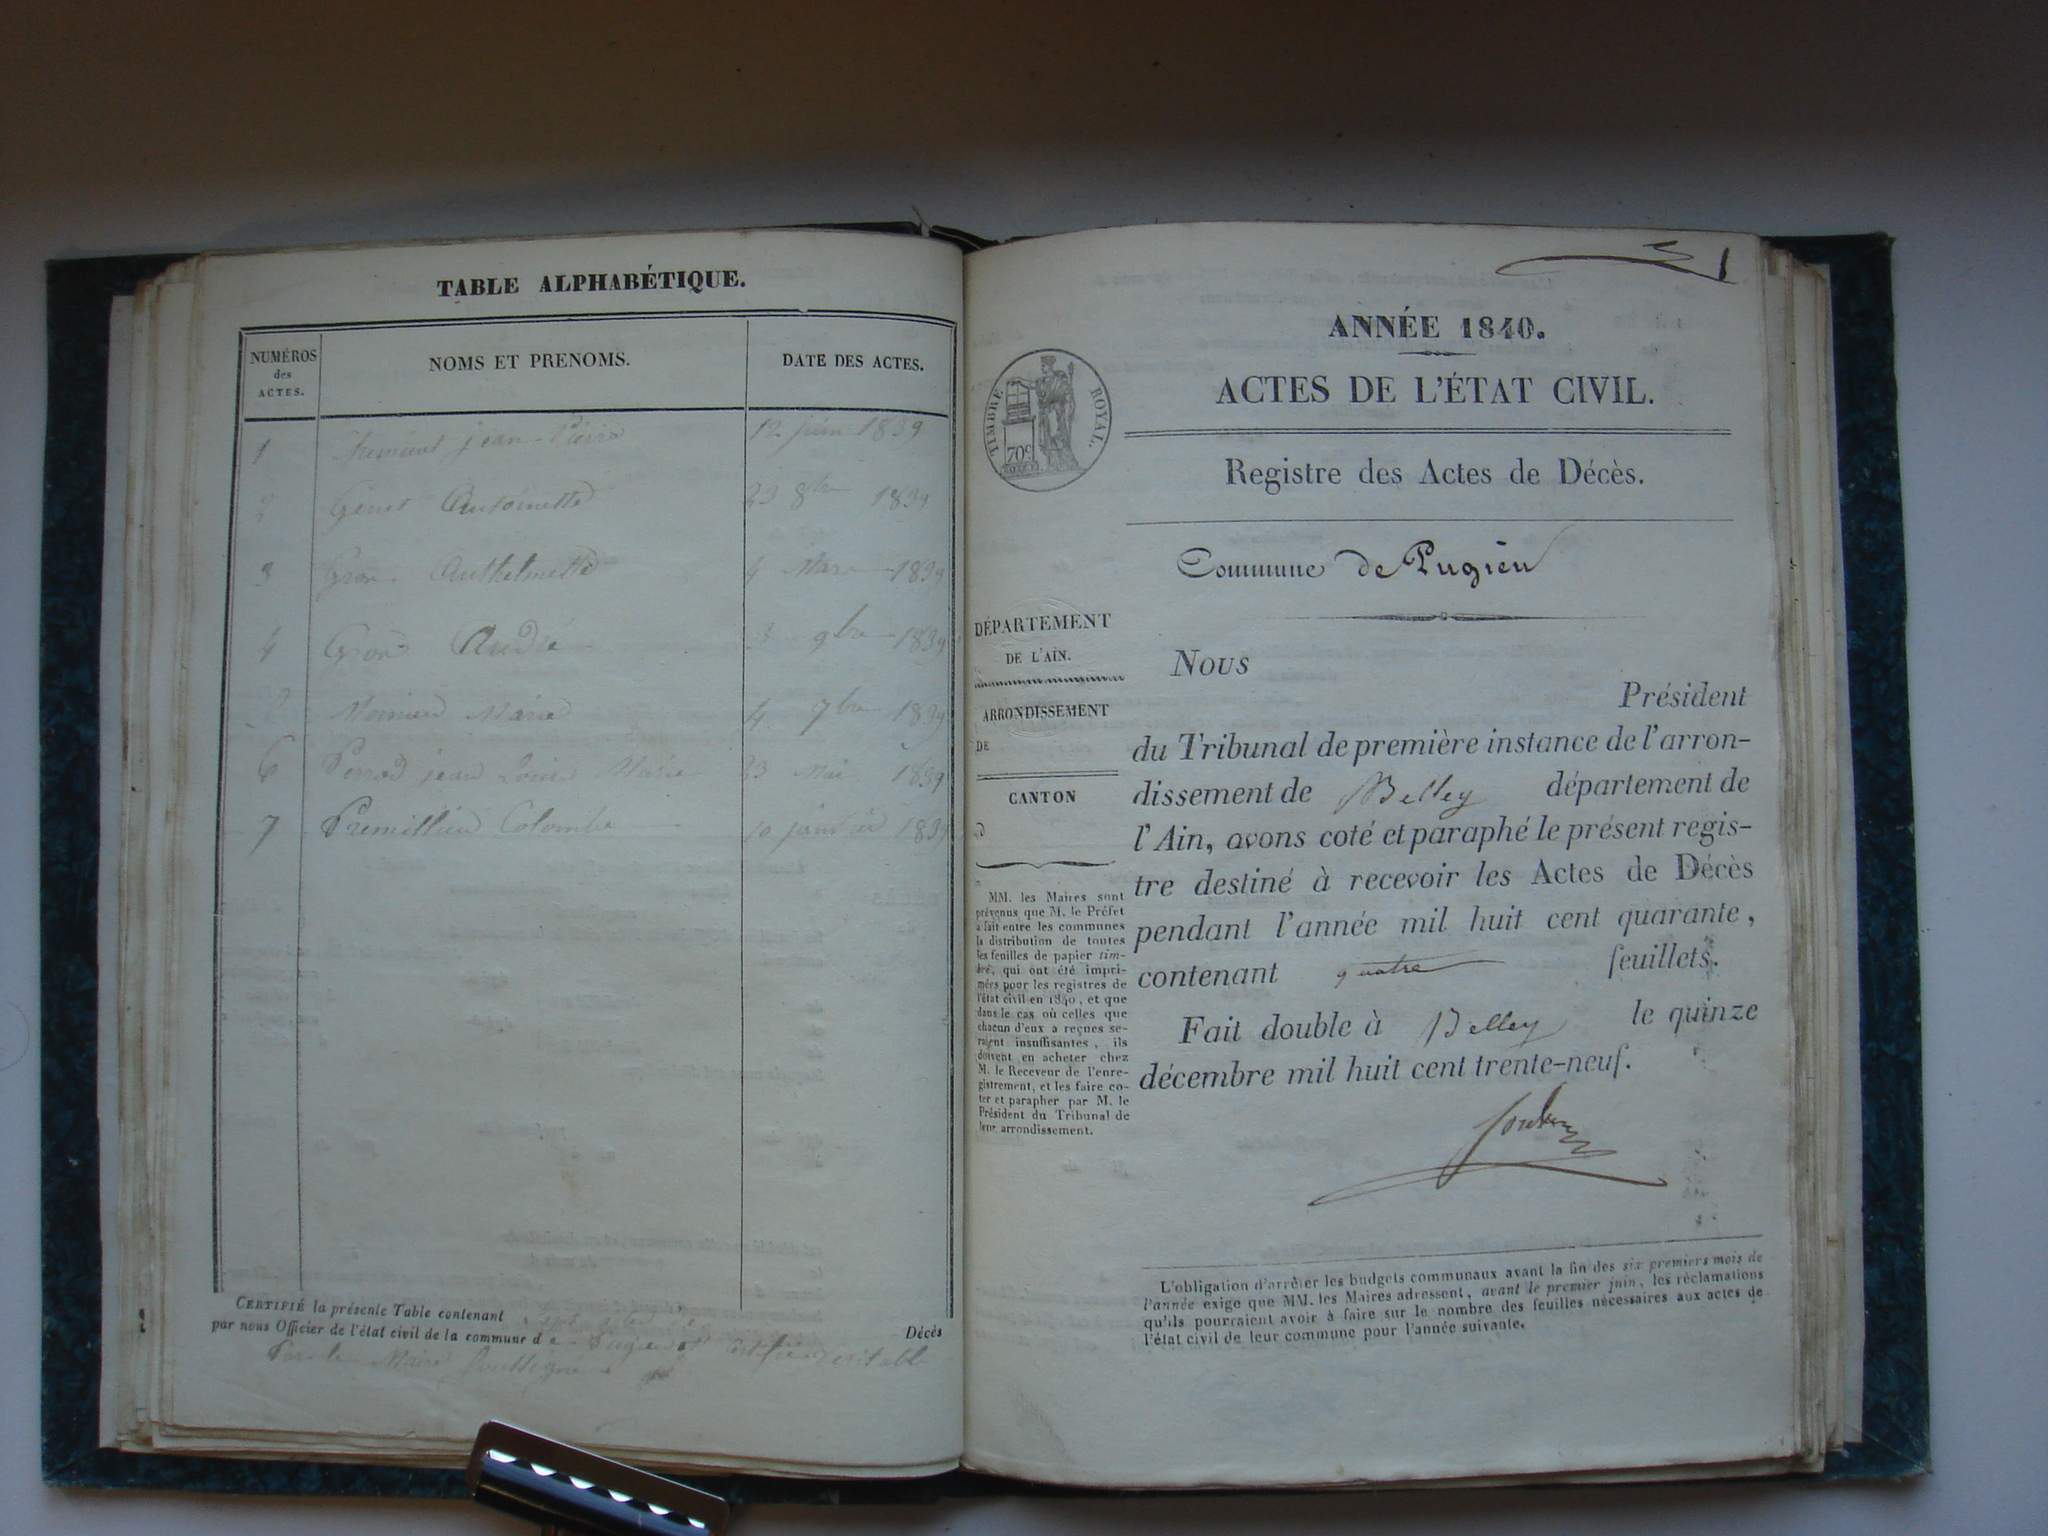 TABLE ALPHABÉTIQUE.
NUMÉROS
des
ACTES.
NOMS ET PRENOMS.
DATE DES ACTES.
1 jean-Pierre 12 juin 1839
2 Genet Antoinette 23 8bre 1839
3 Gron Anthelmette 4 Mars 1839
4 Gron André 3 9bre 1839
Monnier Marie 4 7bre 1839
6 Perrod jean Louis Marie 23 Mai 1839
7 Premillieu Colombe 10 janvier 1839
CERTIFIÉ la présente Table contenant Décès
par nous Officier de l'état civil de la commune de Pugieu et Certifiée véritable
Par le Maire
1
ANNÉE 1840.
ACTES DE L'ÉTAT CIVIL.
Registre des Actes de Décès.
Commune de Pugieu
TIMBRE ROYAL.
70c
DÉPARTEMENT
DE L'AIN.
ARRONDISSEMENT
DE
CANTON
MM. les Maires sont
prévenus que M. le Préfet
a fait entre les communes
la distribution de toutes
les feuilles de papier tim-
bré, qui ont été impri-
mées pour les registres de
l'état civil en 1840, et que
dans le cas où celles que
chacun d'eux a reçues se-
raient insuffisantes, ils
doivent en acheter chez
M. le Receveur de l'enre-
gistrement, et les faire co-
ter et parapher par M. le
Président du Tribunal de
leur arrondissement.
Nous
Président
du Tribunal de première instance de l'arron-
dissement de Belley département de
l'Ain, avons coté et paraphé le présent regis-
tre destiné à recevoir les Actes de Décès
pendant l'année mil huit cent quarante,
contenant quatre feuillets.
Fait double à Belley le quinze
décembre mil huit cent trente-neuf.
L'obligation d'arrêter les budgets communaux avant la fin des six premiers mois de
l'année exige que MM. les Maires adressent, avant le premier juin, les réclamations
qu'ils pourraient avoir à faire sur le nombre des feuilles nécessaires aux actes de
l'état civil de leur commune pour l'année suivante.